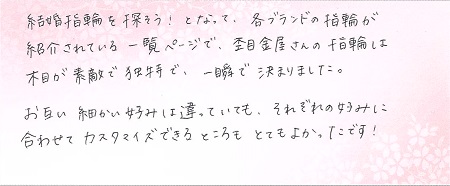 結婚指輪を探そう!となって、各ブランドの指輪が
紹介されている一覧ページで、杢目金屋さんの指輪は
木目が素敵で独特で、一瞬で決まりました。
お互い細かい好みは違っていても、それぞれの好みに
合わせてカスタマイズできるところもとてもよかったです!